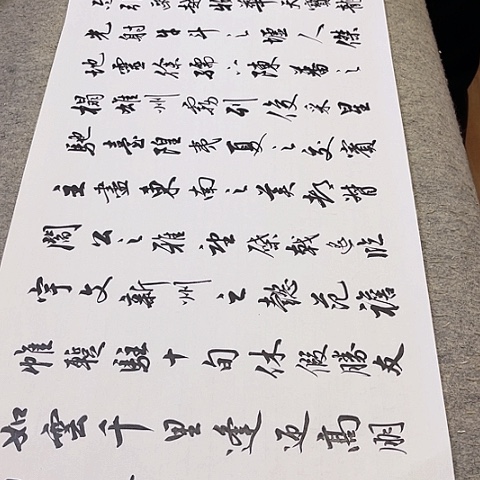 引甌越物華天寶龍
光射牛斗之墟人傑
地靈徐孺下陳蕃之
榻雄州霧列俊采星
馳臺隍夷夏之交賓
主盡東南之美都督
閻公之雅望棨戟遥臨
宇文新州之懿范襜
帷暫駐十旬休假勝友
如雲千里逢迎高朋